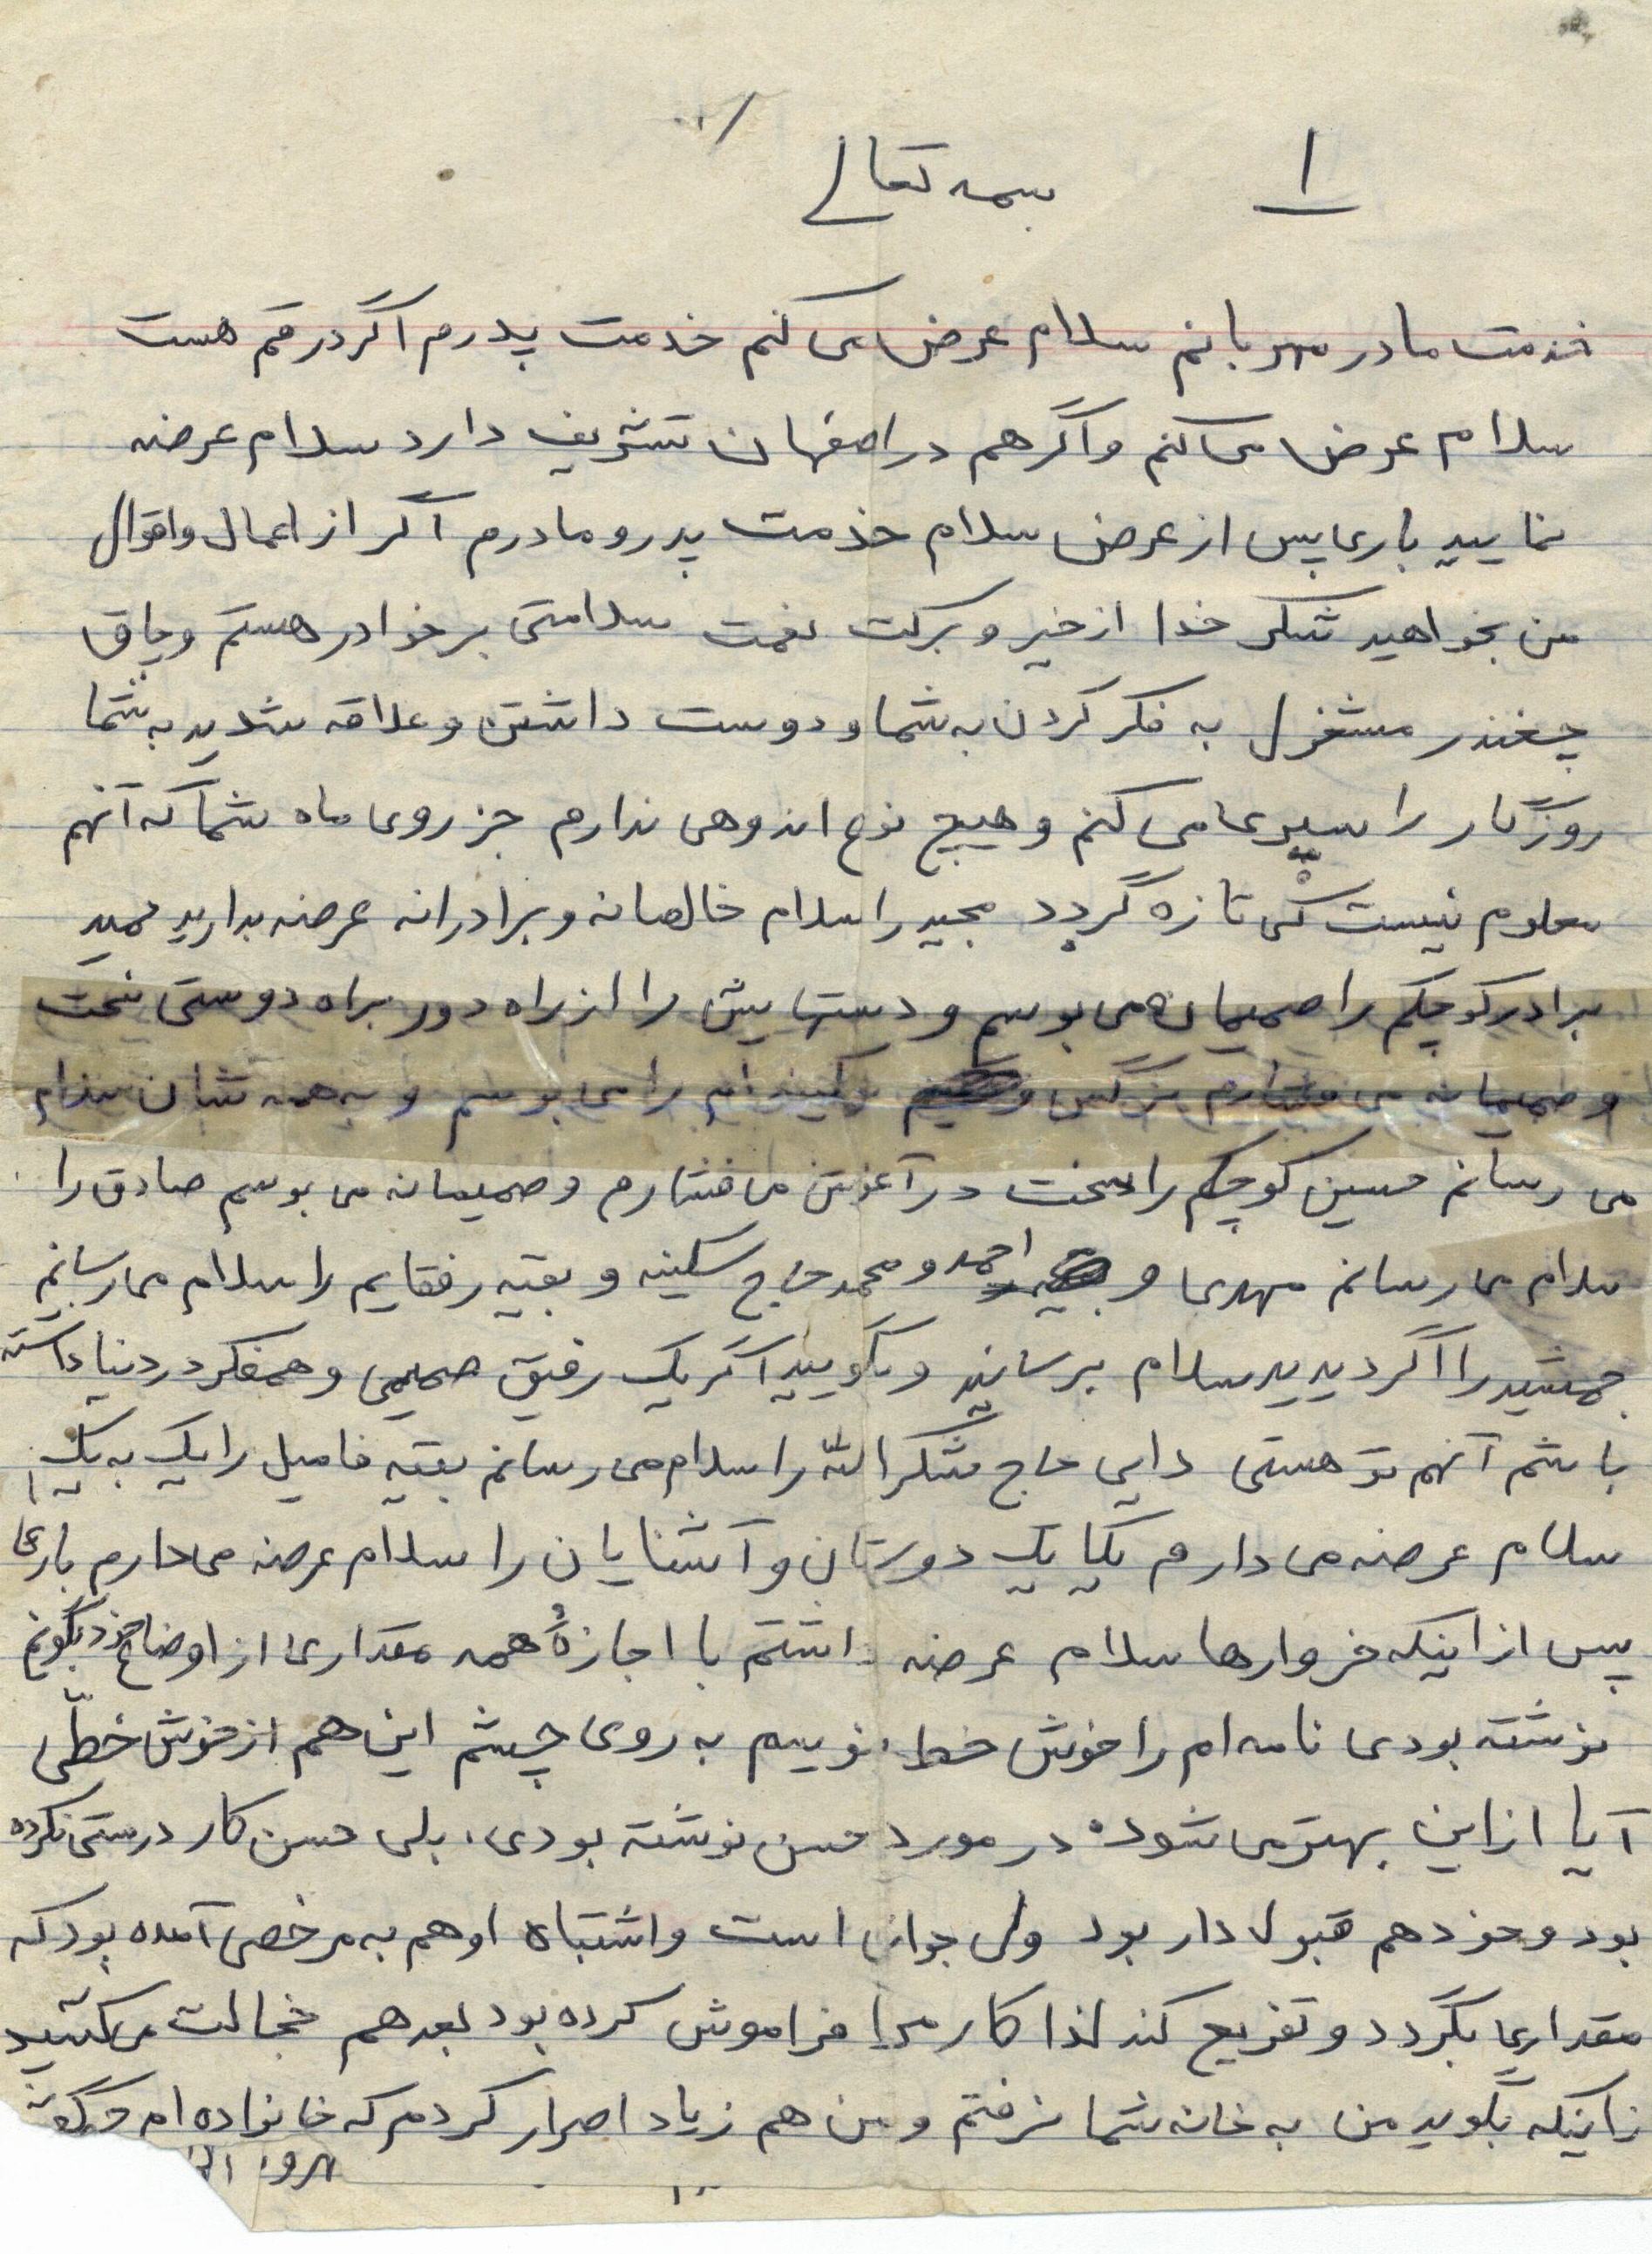 ۱
بسمه تعالی
خدمت مادر مهربانم سلام عرض می کنم خدمت پدرم اگر در قم هست
سلام عرض می کنم و اگر هم در اصفهان تشریف دارد سلام عرضه
نمایید باری پس از عرض سلام خدمت پدر و مادرم اگر از اعمال و اقوال
من بخواهید شکر خدا از خیر و برکت نعمت سلامتی برخوادر هستم و چاق
چغندر مشغول به فکر کردن به شما و دوست داشتن و علاقه شدید به شما
روزگار را سپری می کنم و هیچ نوع اندوهی ندارم جز روی ماه شما که آنهم
معلوم نیست کی تازه گردد مجید را سلام خالصانه و برادرانه عرضه بدارید حمید
برادر کوچکم را صمیمانه می بوسم و دستهایش را از راه دور براه دوستی سخت
و صمیمانه می فشارم نرگس و سکینه ام را می بوسم و به همه شان سلام
می رسانم حسین کوچکم را سخت در آغوش می فشارم و صمیمانه می بوسم صادق را
سلام می رسانم مهدی و احمد و محمد حاج سکینه و بقیه رفقایم را سلام می رسانم
جمشید را اگر دیدید سلام برسانید و بگویید اگر یک رفیق صمیمی و همفکر در دنیا داشته
باشم آنهم تو هستی دایی حاج شکرالله را سلام می رسانم بقیه فامیل را یک به یک
سلام عرضه می دارم یکایک دوستان و آشنایان را سلام عرضه می دارم باری
پس از اینکه خروارها سلام عرضه داشتم با اجازهٔ همه مقداری از اوضاع خود بگویم
نوشته بودی نامه ام را خوش خط بنویسم به روی چشم این هم از خوش خطّی
آیا از این بهتر می شود؟ در مورد حسن نوشته بودی، بلی حسن کار درستی نکرده
بود و خود هم قبول دار بود ولی جوان است و اشتباه او هم به مرخصی آمده بود که
مقداری بگردد و تفریح کند لذا کار مرا فراموش کرده بود بعد هم خجالت می کشید
زاینکه بگوید من به خانه شما نرفتم و من هم زیاد اصرار کردم که خانواده ام